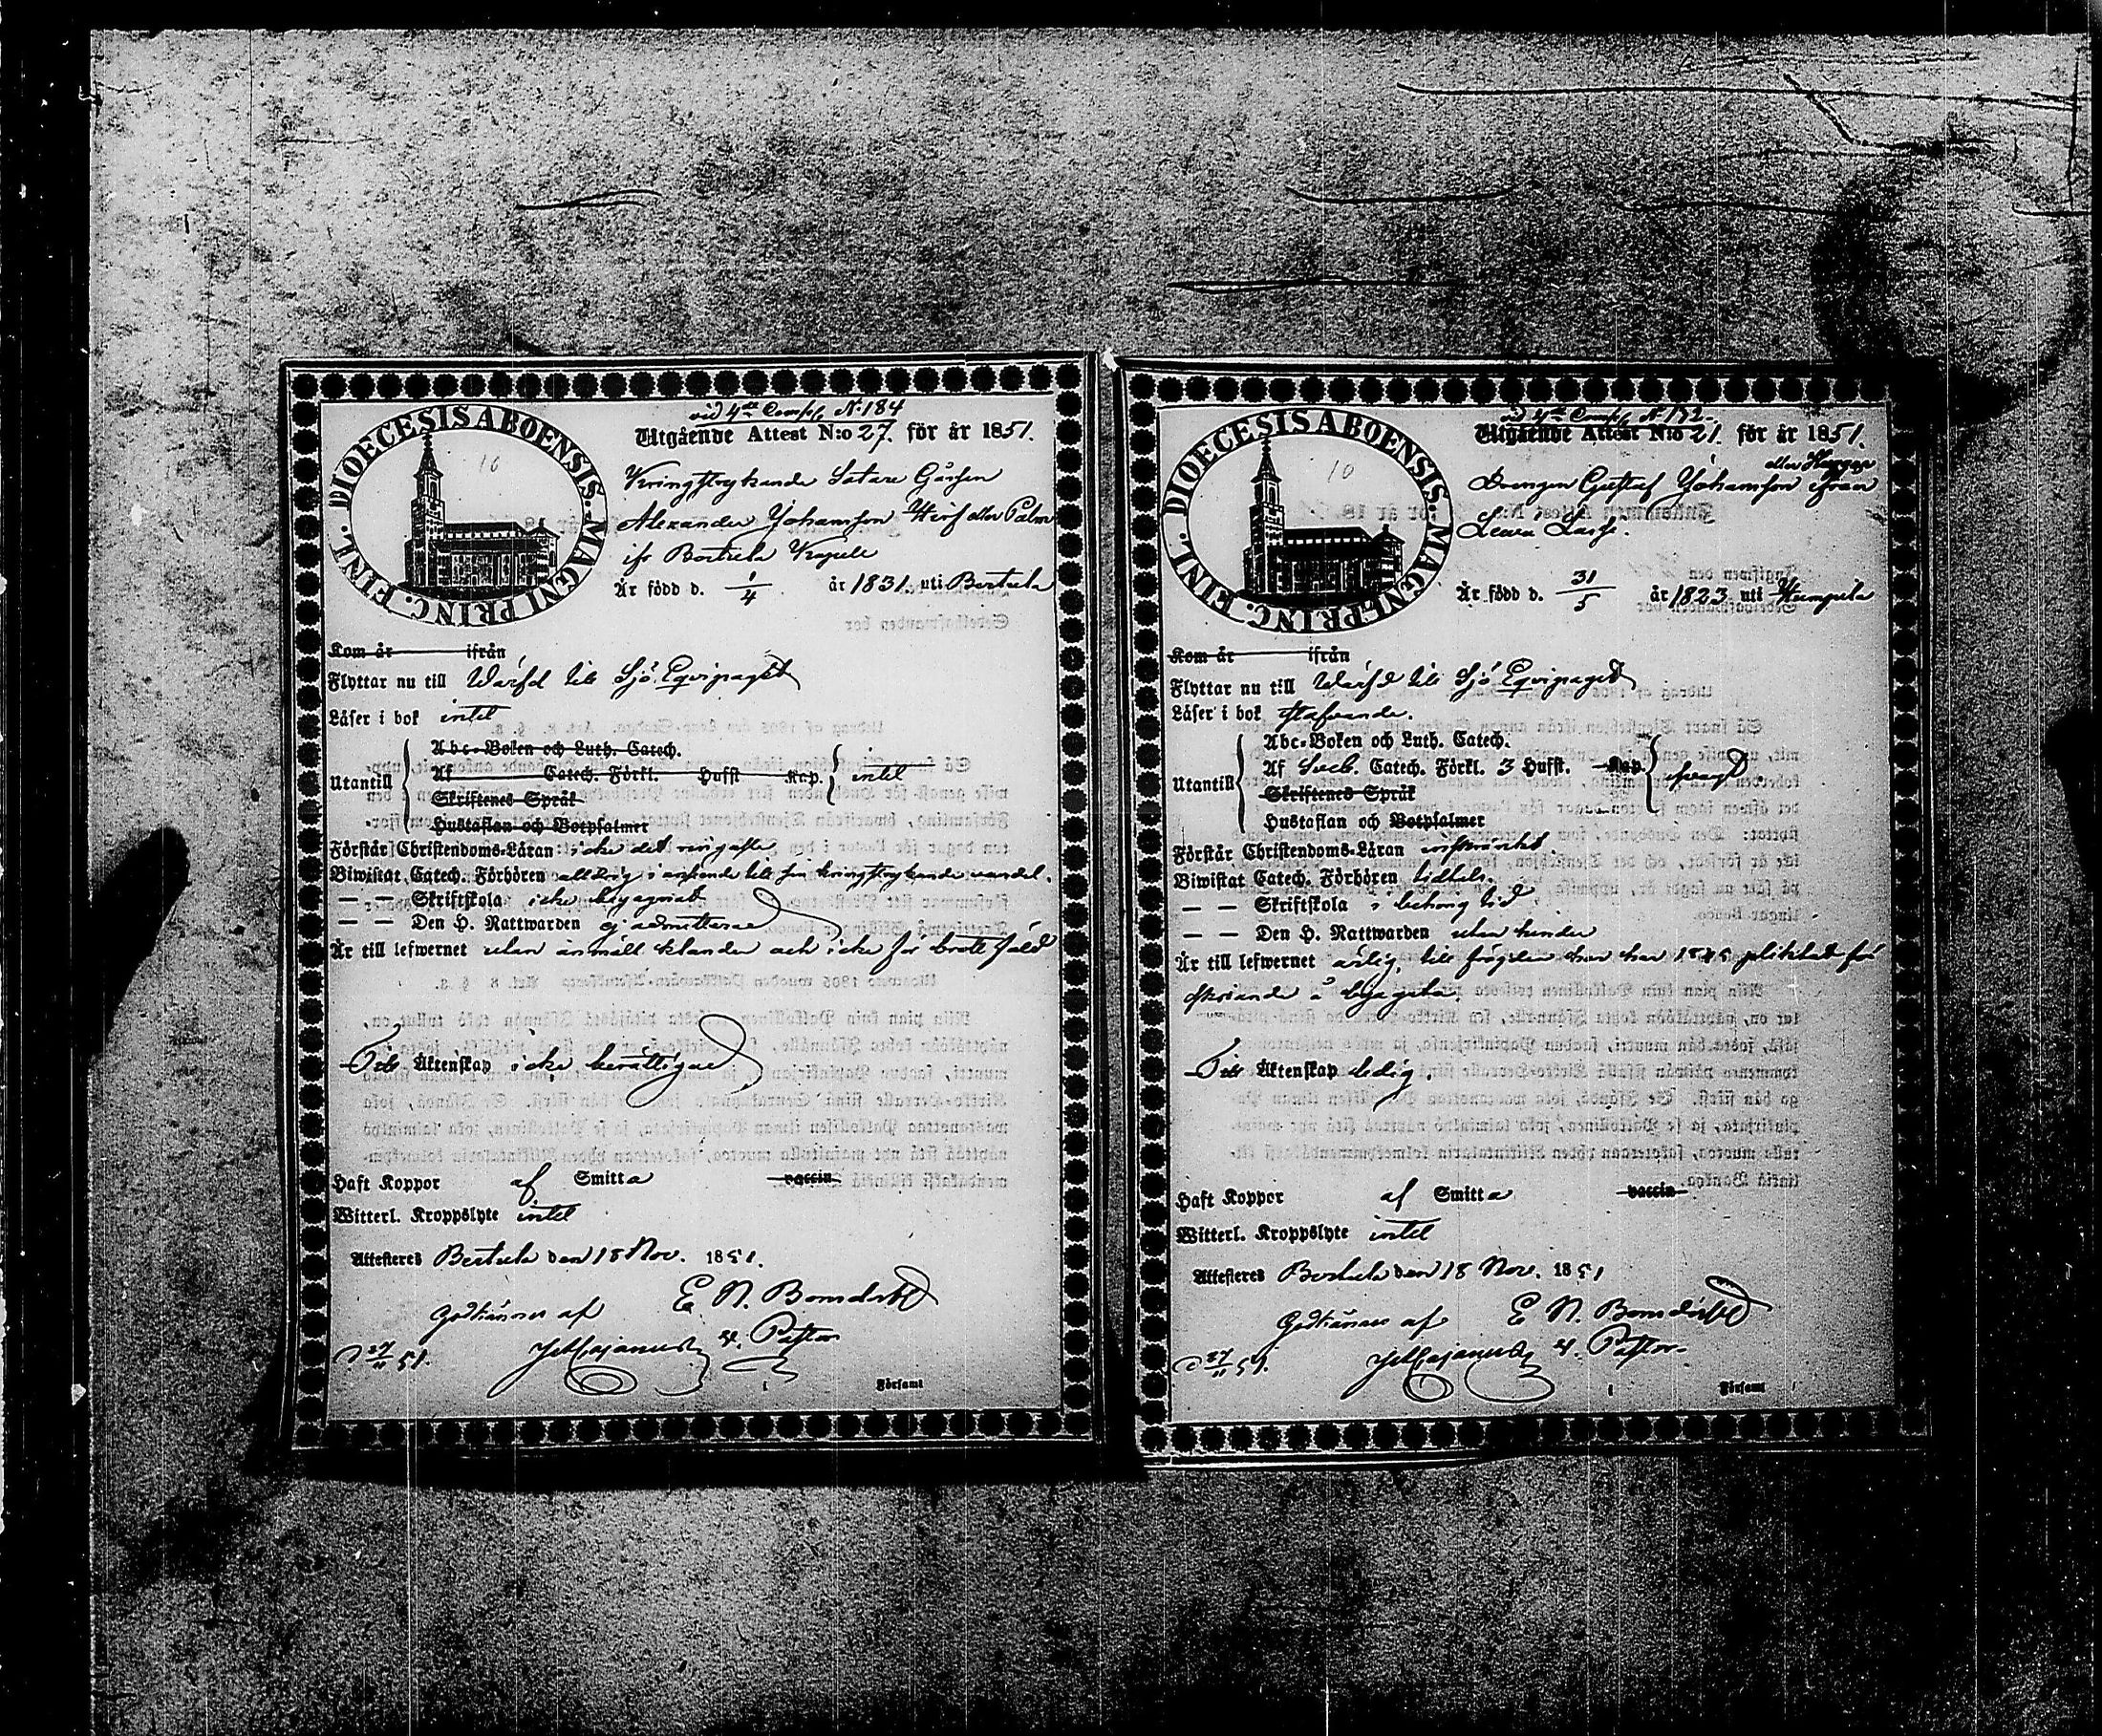 vid 4de Comp. N:184
Utgående Attest N:o 27. för år 1851.
DIOECESIS ABOENSIS. MAGNI PRINC. FINL.
10
Kringstrykande Gåssen
Alexander Johansson eller Palm
ifr Bertula Kapell
Är född d. 1/4 år 1831. uti Bertula
Kom år ifrån
Flyttar nu till Wärfd till Sjö Equipaget
Läser i bok intet
Utantill
Abc-Boken och Luth. Catech.
Af Catech. Förkl. Hufst Kap. intet
Skriftenes Språk
Hustaflan och Botpsalmer
Förstår Christendoms-Läran icke det ringaste
Biwistat Catech. Förhören alldrig i anseende till sin kringstrykande vandel.
— — Skriftskola icke begagnat
— — Den H. Nattwarden ej admitterad
Är till lefwernet utan anmält klander och icke för brott fäld
Till Äktenskap icke berättigad
Haft Koppor af Smitta vaccin
Witterl. Kroppslyte intet
Attesteras Bertula den 18 Nov. 1851.
E N. Bonsdorff
Godkännes af
v. Pastor
D 27/11 51.
Församl
vid 4de Comp. N. 172.
Utgående Attest N:o 21. för år 1851.
DIOECESIS ABOENSIS. MAGNI PRINC. FINL.
10
eller
Drengen Gustaf Johansson ifrån
Är född d. 31/5 år 1823 uti Humpila
Kom år ifrån
Flyttar nu till Wärfd till Sjö Equipaget
Läser i bok stafvande.
Utantill
Abc-Boken och Luth. Catech.
Af Sveb. Catech. Förkl. 3 Hufst. Kap. svagt
Skriftenes Språk
Hustaflan och Botpsalmer
Förstår Christendoms-Läran inskränkt
Biwistat Catech. Förhören tidtals.
— — Skriftskola i behörig tid
— — Den H. Nattwarden utan hinder
Är till lefwernet ärlig, till frögden har han 1845 pliktat för
å begagela
Till Äktenskap ledig.
Haft Koppor af Smitta vaccin
Witterl. Kroppslyte intet
Attesteras Bertula den 18 Nov. 1851
E N. Bonsdorff
Godkännes af
v. Pastor
D 27/11 51.
Församl